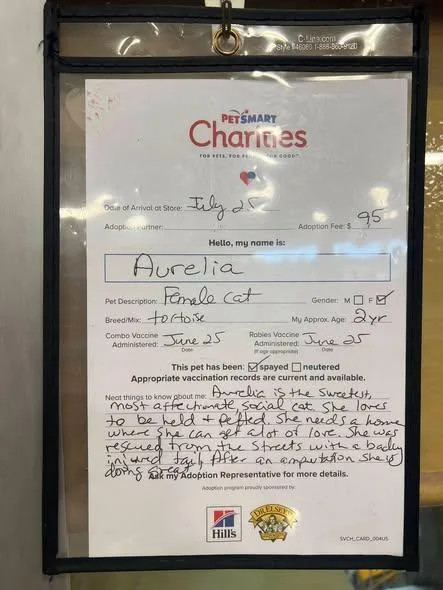 C-Line.com
Style #46060 1-888-860-9120
PETSMART
Charities
FOR PETS. FOR PEOPLE. FOR GOOD™.
Date of Arrival at Store: July 25
Adoption Partner: Adoption Fee: $ 95
Hello, my name is:
Aurelia
Pet Description: Female cat Gender: M F
Breed/Mix: tortoise My Approx. Age: 2yr
Combo Vaccine Administered: June 25 Rabies Vaccine Administered: June 25
Date (If age appropriate) Date
This pet has been: spayed neutered
Appropriate vaccination records are current and available.
Neat things to know about me: Aurelia is the sweetest,
most affectionate, social cat. She loves
to be held + petted. She needs a home
where she can get a lot of love. She was
rescued from the streets with a badly
injured tail. After an amputation she is
doing great
Ask my Adoption Representative for more details.
Adoption program proudly sponsored by:
Hill's
DR. ELSEY'S
SVCH_CARD_004US